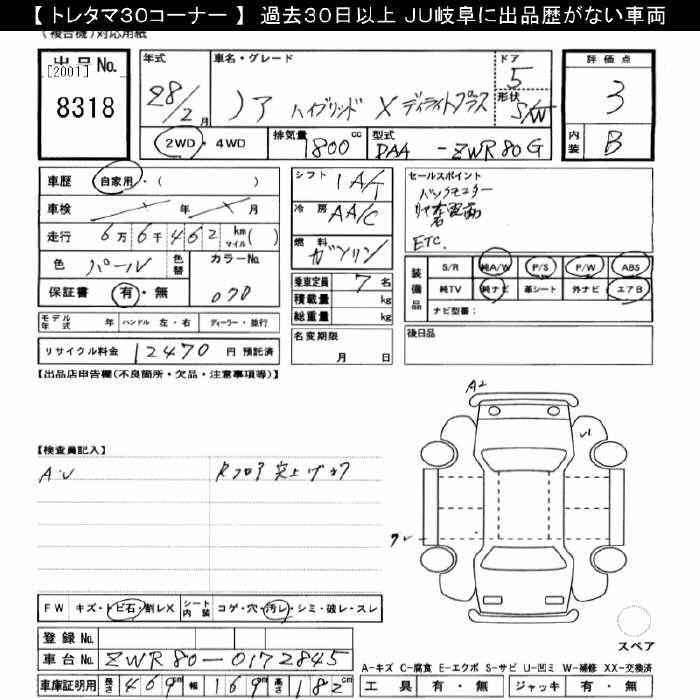 【 トレタマ30コーナー 】 過去30日以上 JU岐阜に出品歴がない車両
(複合機)対応用紙
出品No.
[2001]
8318
年式
28/2月
車名・グレード
ノア ハイブリッド X ディライトプラス
ドア
5
形状
S/W
評価点
3
内装
B
2WD・4WD
排気量
1800cc
型式
DAA-ZWR80G
車歴
自家用・( )
車検 年 月
走行 6万6千462 km マイル( )
色 パール
色替
カラーNo.
070
保証書 有・無
モデル年式 年 ハンドル 左・右 ディーラー・並行
リサイクル料金 12470 円 預託済
シフト
IA/T
冷房
AA/C
燃料
ガソリン
乗車定員 7名
積載量 kg
総重量 kg
名変期限
月 日
セールスポイント
バックモニター
ETC.
装備品
S/R 純A/W P/S P/W ABS
純TV 純ナビ 革シート 外ナビ エアB
ナビ型番:
後日品
【出品店申告欄(不良箇所・欠品・注意事項等)】
A2
U1
【検査員記入】
A・U
Rフロア突上げキズ
FW キズ・トビ石・割レX シート内装 コゲ・穴・汚レ・シミ・破レ・スレ
登録No.
車台No. ZWR80-0172845
車庫証明用 長さ 469cm 幅 169cm 高さ 182cm
スペア
A-キズ C-腐食 E-エクボ S-サビ U-凹ミ W-補修 XX-交換済
工具 有・無 ジャッキ 有・無